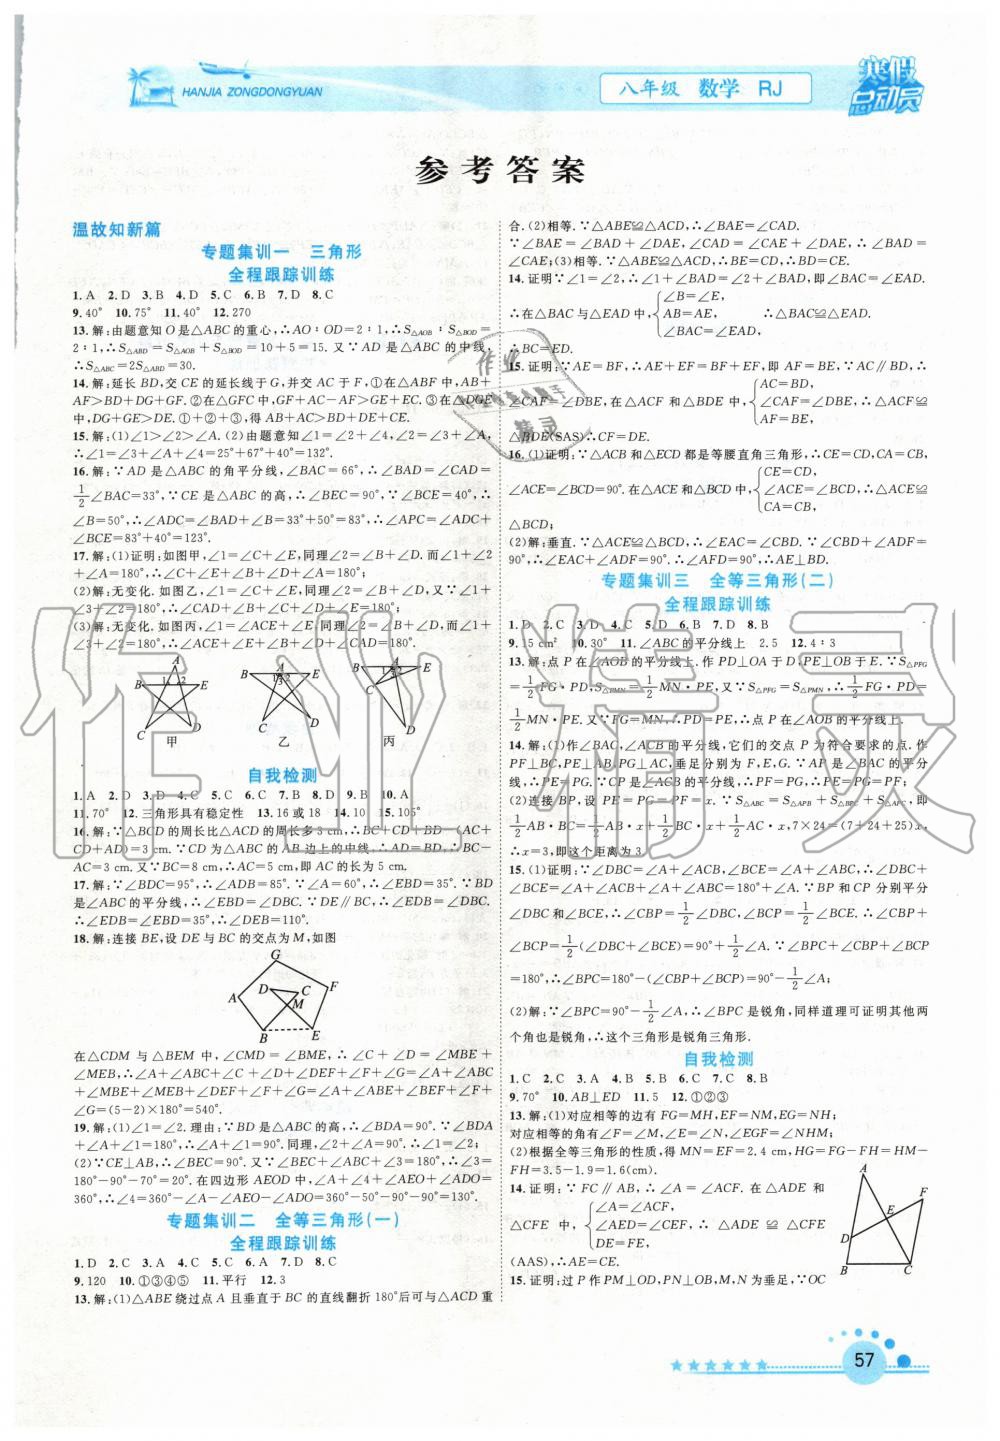 HANJIA ZONGDONGYUAN
八年级 数学 RJ
寒假总动员
参考答案
温故知新篇
专题集训一 三角形
全程跟踪训练
1.A 2.D 3.B 4.D 5.C 6.B 7.D 8.C
9.40° 10.75° 11.40° 12.270
13.解:由题意知O是△ABC的重心,∴AO∶OD=2∶1,∴S△AOB∶S△BOD=
2∶1,∴S△ABD=S△AOB+S△BOD=10+5=15.又∵AD是△ABC的中线,
∴S△ABC=2S△ABD=30.
14.解:延长BD,交CE的延长线于G,并交AC于F,①在△ABF中,AB+
AF>BD+DG+GF.②在△GFC中,GF+AC-AF>GE+EC.③在△DGE
中,DG+GE>DE.①+②+③,得AB+AC>BD+DE+CE.
15.解:(1)∠1>∠2>∠A.(2)由题意知∠1=∠2+∠4,∠2=∠3+∠A,
∴∠1=∠3+∠A+∠4=25°+67°+40°=132°.
16.解:∵AD是△ABC的角平分线,∠BAC=66°,∴∠BAD=∠CAD=
1/2∠BAC=33°,∵CE是△ABC的高,∴∠BEC=90°,∵∠BCE=40°,∴
∠B=50°,∴∠ADC=∠BAD+∠B=33°+50°=83°,∴∠APC=∠ADC+
∠BCE=83°+40°=123°.
17.解:(1)证明:如图甲,∠1=∠C+∠E,同理∠2=∠B+∠D.而∠1+∠2
+∠A=180°,∴∠A+∠B+∠C+∠D+∠E=180°.
(2)解:无变化.如图乙,∠1=∠C+∠E,同理∠2=∠B+∠D.又∵∠1+
∠3+∠2=180°,∴∠CAD+∠B+∠C+∠D+∠E=180°.
(3)解:无变化.如图丙,∵∠1=∠ACE+∠E 同理∠2=∠B+∠D,又∵∠1
+∠3+∠2=180°,∴∠ACE+∠E+∠B+∠D+∠CAD=180°.
A B 1 2 E C D 甲
A B 1 3 2 E C D 乙
A B 1 3 2 E C D 丙
自我检测
1.A 2.D 3.B 4.D 5.C 6.C 7.B 8.D 9.B 10.A
11.70° 12.三角形具有稳定性 13.16或18 14.10 15.105°
16.解:∵△BCD的周长比△ACD的周长多3 cm,∴BC+CD+BD-(AC+
CD+AD)=3 cm.又∵CD为△ABC的AB边上的中线,∴AD=BD,∴BC-
AC=3 cm.又∵BC=8 cm,∴AC=5 cm,即AC的长为5 cm.
17.解:∵∠BDC=95°,∴∠ADB=85°.又∵∠A=60°,∴∠EBD=35°.∵BD
是∠ABC的平分线,∴∠EBD=∠DBC.∵DE∥BC,∴∠EDB=∠DBC.
∴∠EDB=∠EBD=35°,∴∠DEB=110°.
18.解:连接BE,设DE与BC的交点为M,如图
G A D C F M B E
在△CDM与△BEM中,∠CMD=∠BME,∴∠C+∠D=∠MBE+
∠MEB,∴∠A+∠ABC+∠C+∠D+∠DEF+∠F+∠G=∠A+∠ABC
+∠MBE+∠MEB+∠DEF+∠F+∠G=∠A+∠ABE+∠BEF+∠F+
∠G=(5-2)×180°=540°.
19.解:(1)∠1=∠2.理由:∵BD是△ABC的高,∴∠BDA=90°.∵∠BDA
+∠A+∠1=180°,∴∠A+∠1=90°.同理,∠2+∠A=90°.∴∠1=∠2;
(2)∵CE⊥AB,∴∠BEC=90°.又∵∠BEC+∠ABC+∠3=180°,∴∠3=
180°-90°-70°=20°.在四边形AEOD中,∠A+∠4+∠AEO+∠ADO=
360°,∴∠4=360°-∠A-∠AEO-∠ADO=360°-50°-90°-90°=130°.
专题集训二 全等三角形(一)
全程跟踪训练
1.D 2.C 3.A 4.D 5.C 6.A 7.D 8.C
9.120 10.①③④⑤ 11.平行 12.3
13.解:(1)△ABE绕过点A且垂直于BC的直线翻折180°后可与△ACD重
合.(2)相等.∵△ABE≌△ACD,∴∠BAE=∠CAD.
∵∠BAE=∠BAD+∠DAE,∠CAD=∠CAE+∠DAE,∴∠BAD=
∠CAE;(3)相等.∵△ABE≌△ACD,∴BE=CD,∴BD=CE.
14.证明:∵∠1=∠2,∴∠1+∠BAD=∠2+∠BAD,即∠BAC=∠EAD.
∠B=∠E,
∴在△BAC与△EAD中, AB=AE, ∴△BAC≌△EAD.
∠BAC=∠EAD,
∴BC=ED.
15.证明:∵AE=BF,∴AE+EF=BF+EF,即AF=BE,∵AC∥BD,∴
AC=BD
∠CAF=∠DBE,在△ACF和△BDE中, ∠CAF=∠DBE,∴△ACF≌
AF=BE,
△BDE(SAS)∴CF=DE.
16.(1)证明:∵△ACB和△ECD都是等腰直角三角形,∴CE=CD,CA=CB,
CE=CD,
∠ACE=∠BCD=90°.在△ACE和△BCD中, ∠ACE=∠BCD,∴△ACE≌
CA=CB,
△BCD;
(2)解:垂直.∵△ACE≌△BCD,∴∠AEC=∠CBD.∵∠CBD+∠ADF=
90°,∴∠AEC+∠ADF=90°.∴∠AFD=90°,∴AE⊥BD.
专题集训三 全等三角形(二)
全程跟踪训练
1.D 2.C 3.D 4.D 5.D 6.B 7.D 8.B
9.15 cm² 10.30° 11.∠ABC的平分线上 2.5 12.4∶3
13.解:点P在∠AOB的平分线上.作PD⊥OA于D,PE⊥OB于E.∵S△PFG
=1/2FG·PD,S△PMN=1/2MN·PE,又∵S△PFG=S△PMN,∴1/2FG·PD=
1/2MN·PE.又∵FG=MN,∴PD=PE,∴点P在∠AOB的平分线上.
14.解:(1)作∠BAC,∠ACB的平分线,它们的交点P为符合要求的点.作
PF⊥BC,PE⊥AB,PG⊥AC,垂足分别为F,E,G.∵AP是∠BAC的平分
线,∴PE=PG.∵CP是∠ACB的平分线,∴PF=PG,∴PE=PG=PF;
(2)连接BP,设PE=PG=PF=x.∵S△ABC=S△APB+S△BPC+S△APC,即
1/2AB·BC=1/2AB·x+1/2BC·x+1/2AC·x,7×24=(7+24+25)x,
∴x=3,即这个距离为3.
15.(1)证明:∵∠DBC=∠A+∠ACB,∠BCE=∠A+∠ABC,∴∠DBC+
∠BCE=∠A+∠ACB+∠A+∠ABC=180°+∠A.∵BP和CP分别平分
∠DBC和∠BCE,∴∠CBP=1/2∠DBC,∠BCP=1/2∠BCE.∴∠CBP+
∠BCP=1/2(∠DBC+∠BCE)=90°+1/2∠A.∵∠BPC+∠CBP+∠BCP
=180°,∴∠BPC=180°-(∠CBP+∠BCP)=90°-1/2∠A;
(2)解:∵∠BPC=90°-1/2∠A,∴∠BPC是锐角,同样道理可证明其他两
个角也是锐角,∴这个三角形是锐角三角形.
自我检测
1.C 2.C 3.A 4.B 5.B 6.C 7.C 8.B
9.70° 10.AB⊥ED 11.5 12.①②③
13.解:(1)对应相等的边有FG=MH,EF=NM,EG=NH;
对应相等的角有∠F=∠M,∠E=∠N,∠EGF=∠NHM;
(2)根据全等三角形的性质,得MN=EF=2.4 cm,HG=FG-FH=HM-
FH=3.5-1.9=1.6(cm).
14.证明:∵FC∥AB,∴∠A=∠ACF.在△ADE和
∠A=∠ACF,
△CFE中, ∠AED=∠CEF,∴△ADE≌△CFE
DE=FE,
(AAS),∴AE=CE.
A F D E B C
15.证明:过P作PM⊥OD,PN⊥OB,M,N为垂足,∵OC
57
作业精灵